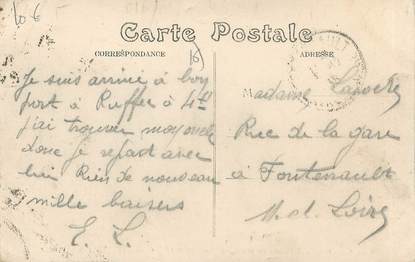 106
Carte Postale
CORRESPONDANCE
ADRESSE
16
Je suis arrivé à bon
port à Ruffec à 4h
j'ai trouver mon oncle
donc je repart avec
lui Rien de nouveau
mille baisers
E. L.
Madame
Rue de la gare
à Fontevrault
M. et Loire